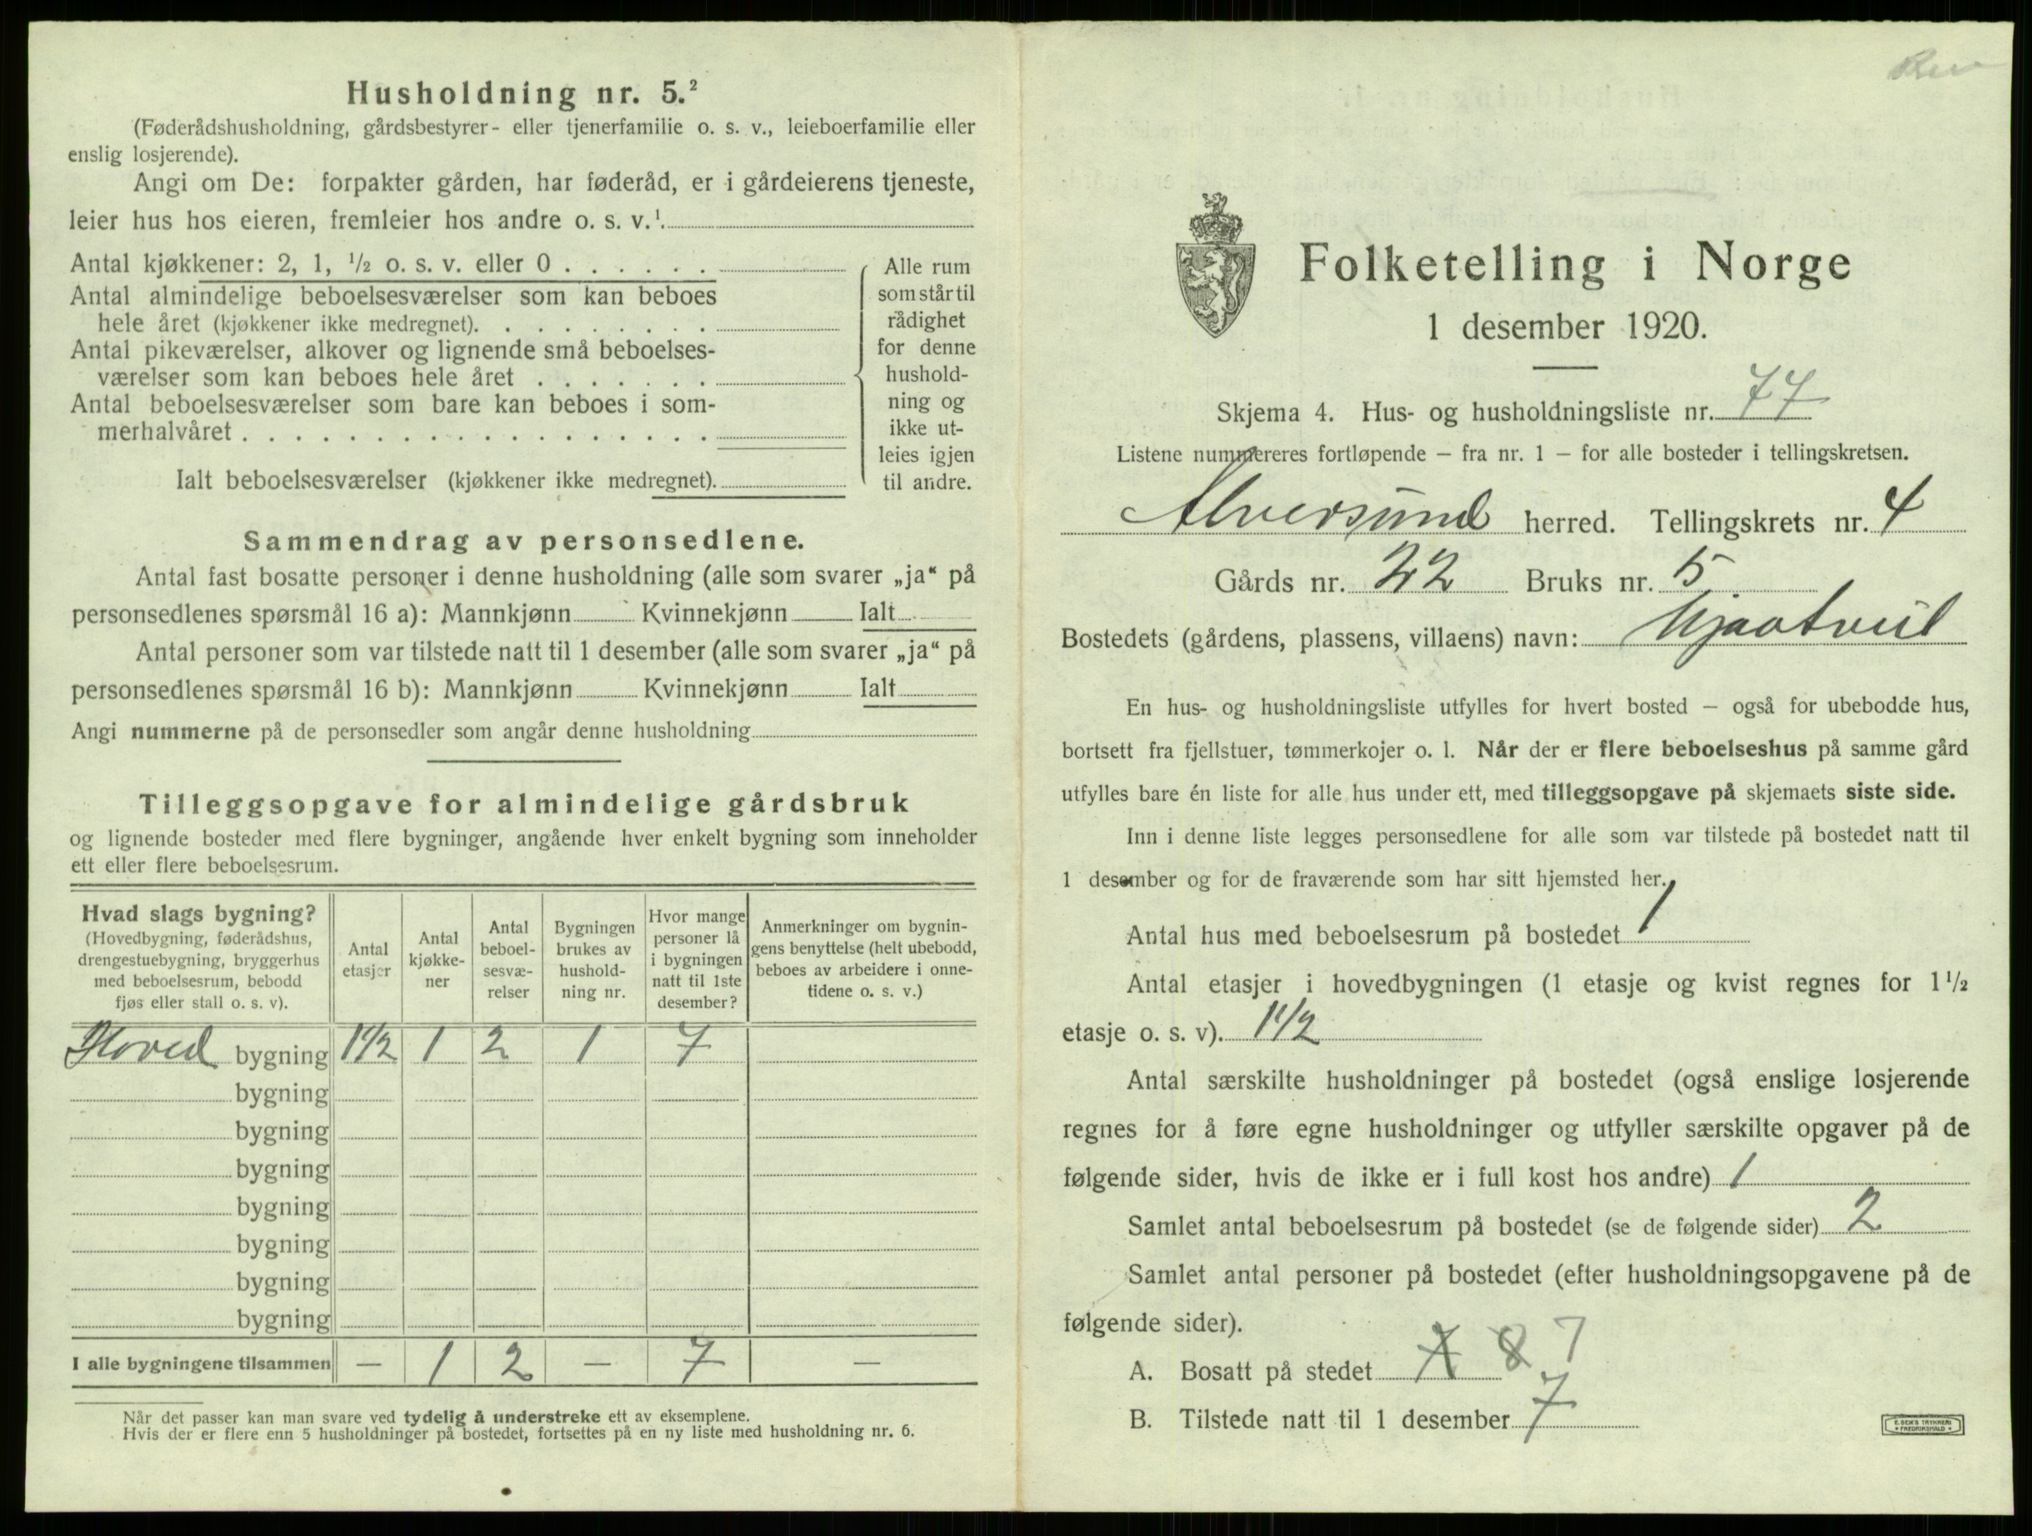 Husholdning nr. 5.²
(Føderådshusholdning, gårdsbestyrer- eller tjenerfamilie o. s. v., leieboerfamilie eller
enslig losjerende).
Angi om De: forpakter gården, har føderåd, er i gårdeierens tjeneste,
leier hus hos eieren, fremleier hos andre o. s. v.¹
Antal kjøkkener: 2, 1, ½ o. s. v. eller 0 . . . . . .
Antal almindelige beboelsesværelser som kan beboes
hele året (kjøkkener ikke medregnet). . . . . . . . .
Antal pikeværelser, alkover og lignende små beboelses-
værelser som kan beboes hele året . . . . . . .
Antal beboelsesværelser som bare kan beboes i som-
merhalvåret . . . . . . . . . . . . . . . . . .
Ialt beboelsesværelser (kjøkkener ikke medregnet).
Alle rum
som står til
rådighet
for denne
hushold-
ning og
ikke ut-
leies igjen
til andre.
Sammendrag av personsedlene.
Antal fast bosatte personer i denne husholdning (alle som svarer „ja“ på
personsedlenes spørsmål 16 a): Mannkjønn Kvinnekjønn Ialt
Antal personer som var tilstede natt til 1 desember (alle som svarer „ja“ på
personsedlenes spørsmål 16 b): Mannkjønn Kvinnekjønn Ialt
Angi nummerne på de personsedler som angår denne husholdning
Tilleggsopgave for almindelige gårdsbruk
og lignende bosteder med flere bygninger, angående hver enkelt bygning som inneholder
ett eller flere beboelsesrum.
Hvad slags bygning?
(Hovedbygning, føderådshus,
drengestuebygning, bryggerhus
med beboelsesrum, bebodd
fjøs eller stall o. s. v).
Antal
etasjer
Antal
kjøkke-
ner
Antal
beboel-
sesvæ-
relser
Bygningen
brukes av
hushold-
ning nr.
Hvor mange
personer lå
i bygningen
natt til 1ste
desember?
Anmerkninger om bygnin-
gens benyttelse (helt ubebodd,
beboes av arbeidere i onne-
tidene o. s. v.)
Hoved bygning 1 1/2 1 2 1 7
bygning
bygning
bygning
bygning
bygning
bygning
bygning
I alle bygningene tilsammen — 1 2 — 7 —
Når det passer kan man svare ved tydelig å understreke ett av eksemplene.
Hvis der er flere enn 5 husholdninger på bostedet, fortsettes på en ny liste med husholdning nr. 6.
Folketelling i Norge
1 desember 1920.
Skjema 4. Hus- og husholdningsliste nr. 77
Listene nummereres fortløpende – fra nr. 1 – for alle bosteder i tellingskretsen.
Alversund herred. Tellingskrets nr. 4
Gårds nr. 22 Bruks nr. 5
Bostedets (gårdens, plassens, villaens) navn:
En hus- og husholdningsliste utfylles for hvert bosted – også for ubebodde hus,
bortsett fra fjellstuer, tømmerkojer o. l. Når der er flere beboelseshus på samme gård
utfylles bare én liste for alle hus under ett, med tilleggsopgave på skjemaets siste side.
Inn i denne liste legges personsedlene for alle som var tilstede på bostedet natt til
1 desember og for de fraværende som har sitt hjemsted her.
Antal hus med beboelsesrum på bostedet 1
Antal etasjer i hovedbygningen (1 etasje og kvist regnes for 1½
etasje o. s. v). 1 1/2
Antal særskilte husholdninger på bostedet (også enslige losjerende
regnes for å føre egne husholdninger og utfyller særskilte opgaver på de
følgende sider, hvis de ikke er i full kost hos andre) 1
Samlet antal beboelsesrum på bostedet (se de følgende sider) 2
Samlet antal personer på bostedet (efter husholdningsopgavene på de
følgende sider).
A. Bosatt på stedet 7 8 7
B. Tilstede natt til 1 desember 7
E. SEM'S TRYKKERI
• FREDRIKSHALD •